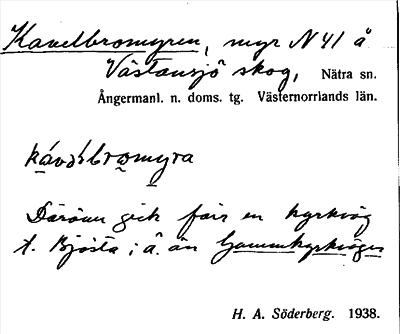 Kavelbromyren, myr N 41 å
Västansjö skog, Nätra sn.
Ångermanl. n. doms. tg. Västernorrlands län.
kávəlbromyra
Däröver gick förr en kyrkväg
t. Bjästa; å. än Gammkyrkvägen
H. A. Söderberg. 1938.